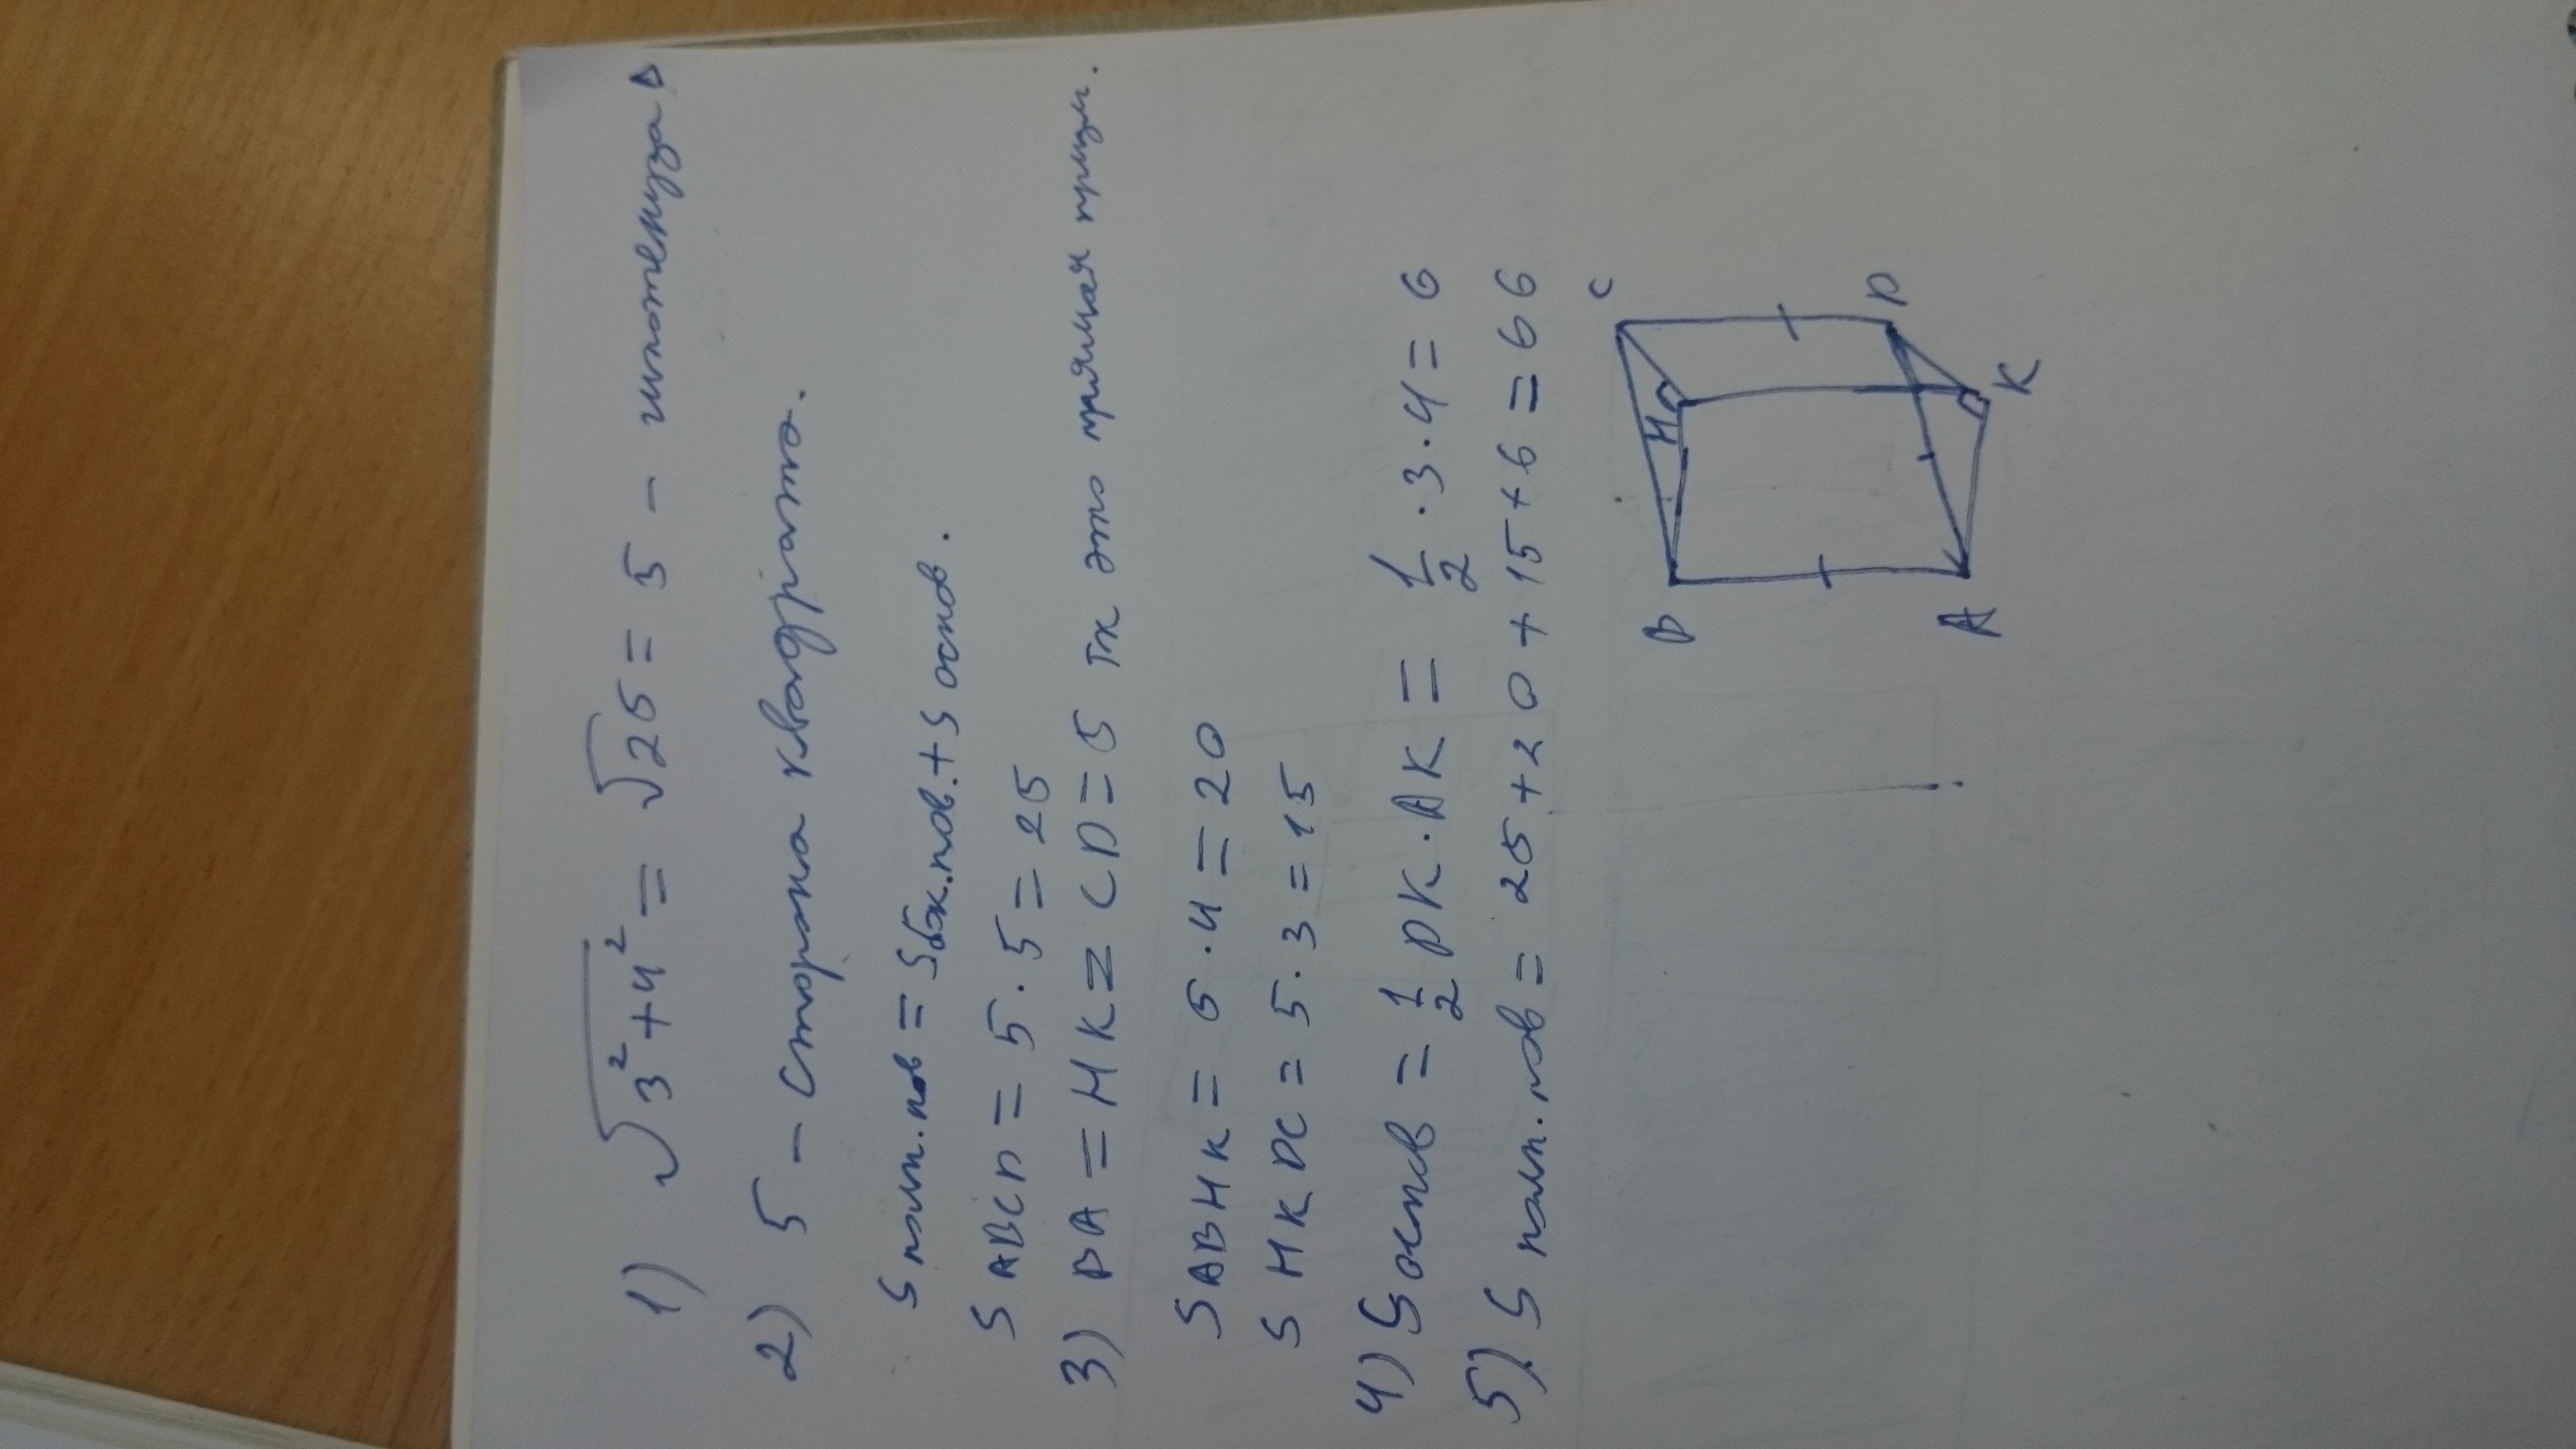 1) √3²+4² = √25 = 5 - гипотенуза Δ
2) 5 - сторона квадрата.
S полн. пов = S бок. пов. + S основ.
S ABCD = 5 · 5 = 25
3) BA = HK = CD = 5 тк это прямая призм.
S ABHK = 5 · 4 = 20
S HKDC = 5 · 3 = 15
4) S основ = 1/2 DK · AK = 1/2 · 3 · 4 = 6
5) S полн. пов = 25 + 20 + 15 + 6 = 66
C
H
B
D
K
A